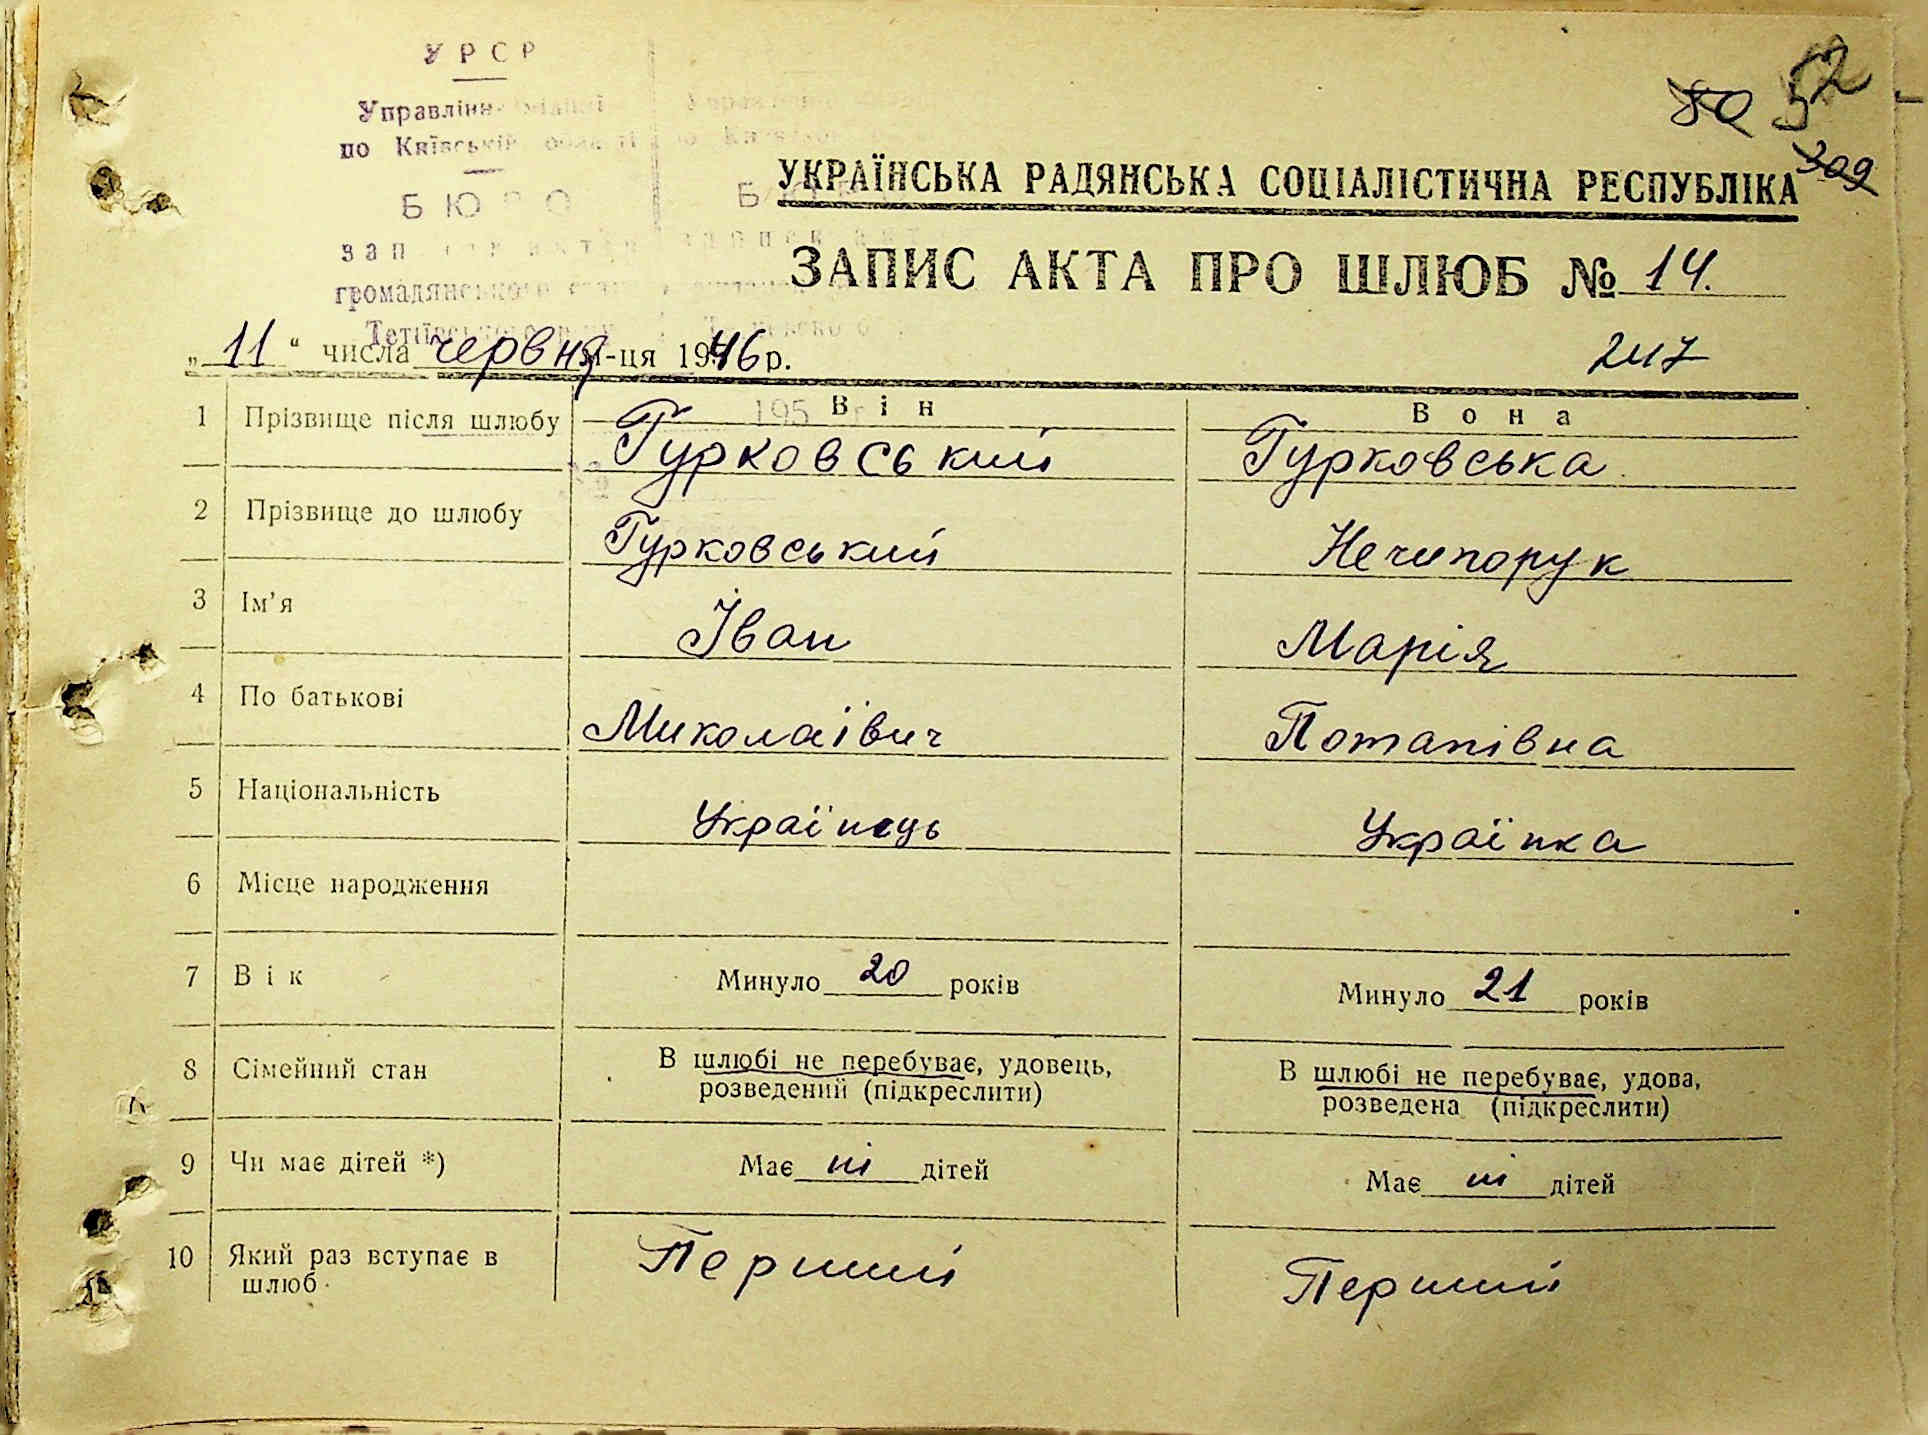 УРСР
Управління міліції
по Київській області
БЮРО
громадянського
80 52
309
УКРАЇНСЬКА РАДЯНСЬКА СОЦІАЛІСТИЧНА РЕСПУБЛІКА
ЗАПИС АКТА ПРО ШЛЮБ № 14.
„ 11 “ числа червня м-ця 1946 р.
247
195
Він Вона
1 Прізвище після шлюбу Гурковський Гурковська
2 Прізвище до шлюбу Гурковський Нечипорук
3 Ім'я Іван Марія
4 По батькові Миколаївич Потапівна
5 Національність Українець Українка
6 Місце народження
7 Вік Минуло 20 років Минуло 21 років
8 Сімейний стан В шлюбі не перебуває, удовець, В шлюбі не перебуває, удова,
розведений (підкреслити) розведена (підкреслити)
9 Чи має дітей *) Має ні дітей Має ні дітей
10 Який раз вступає в Перший Перший
шлюб